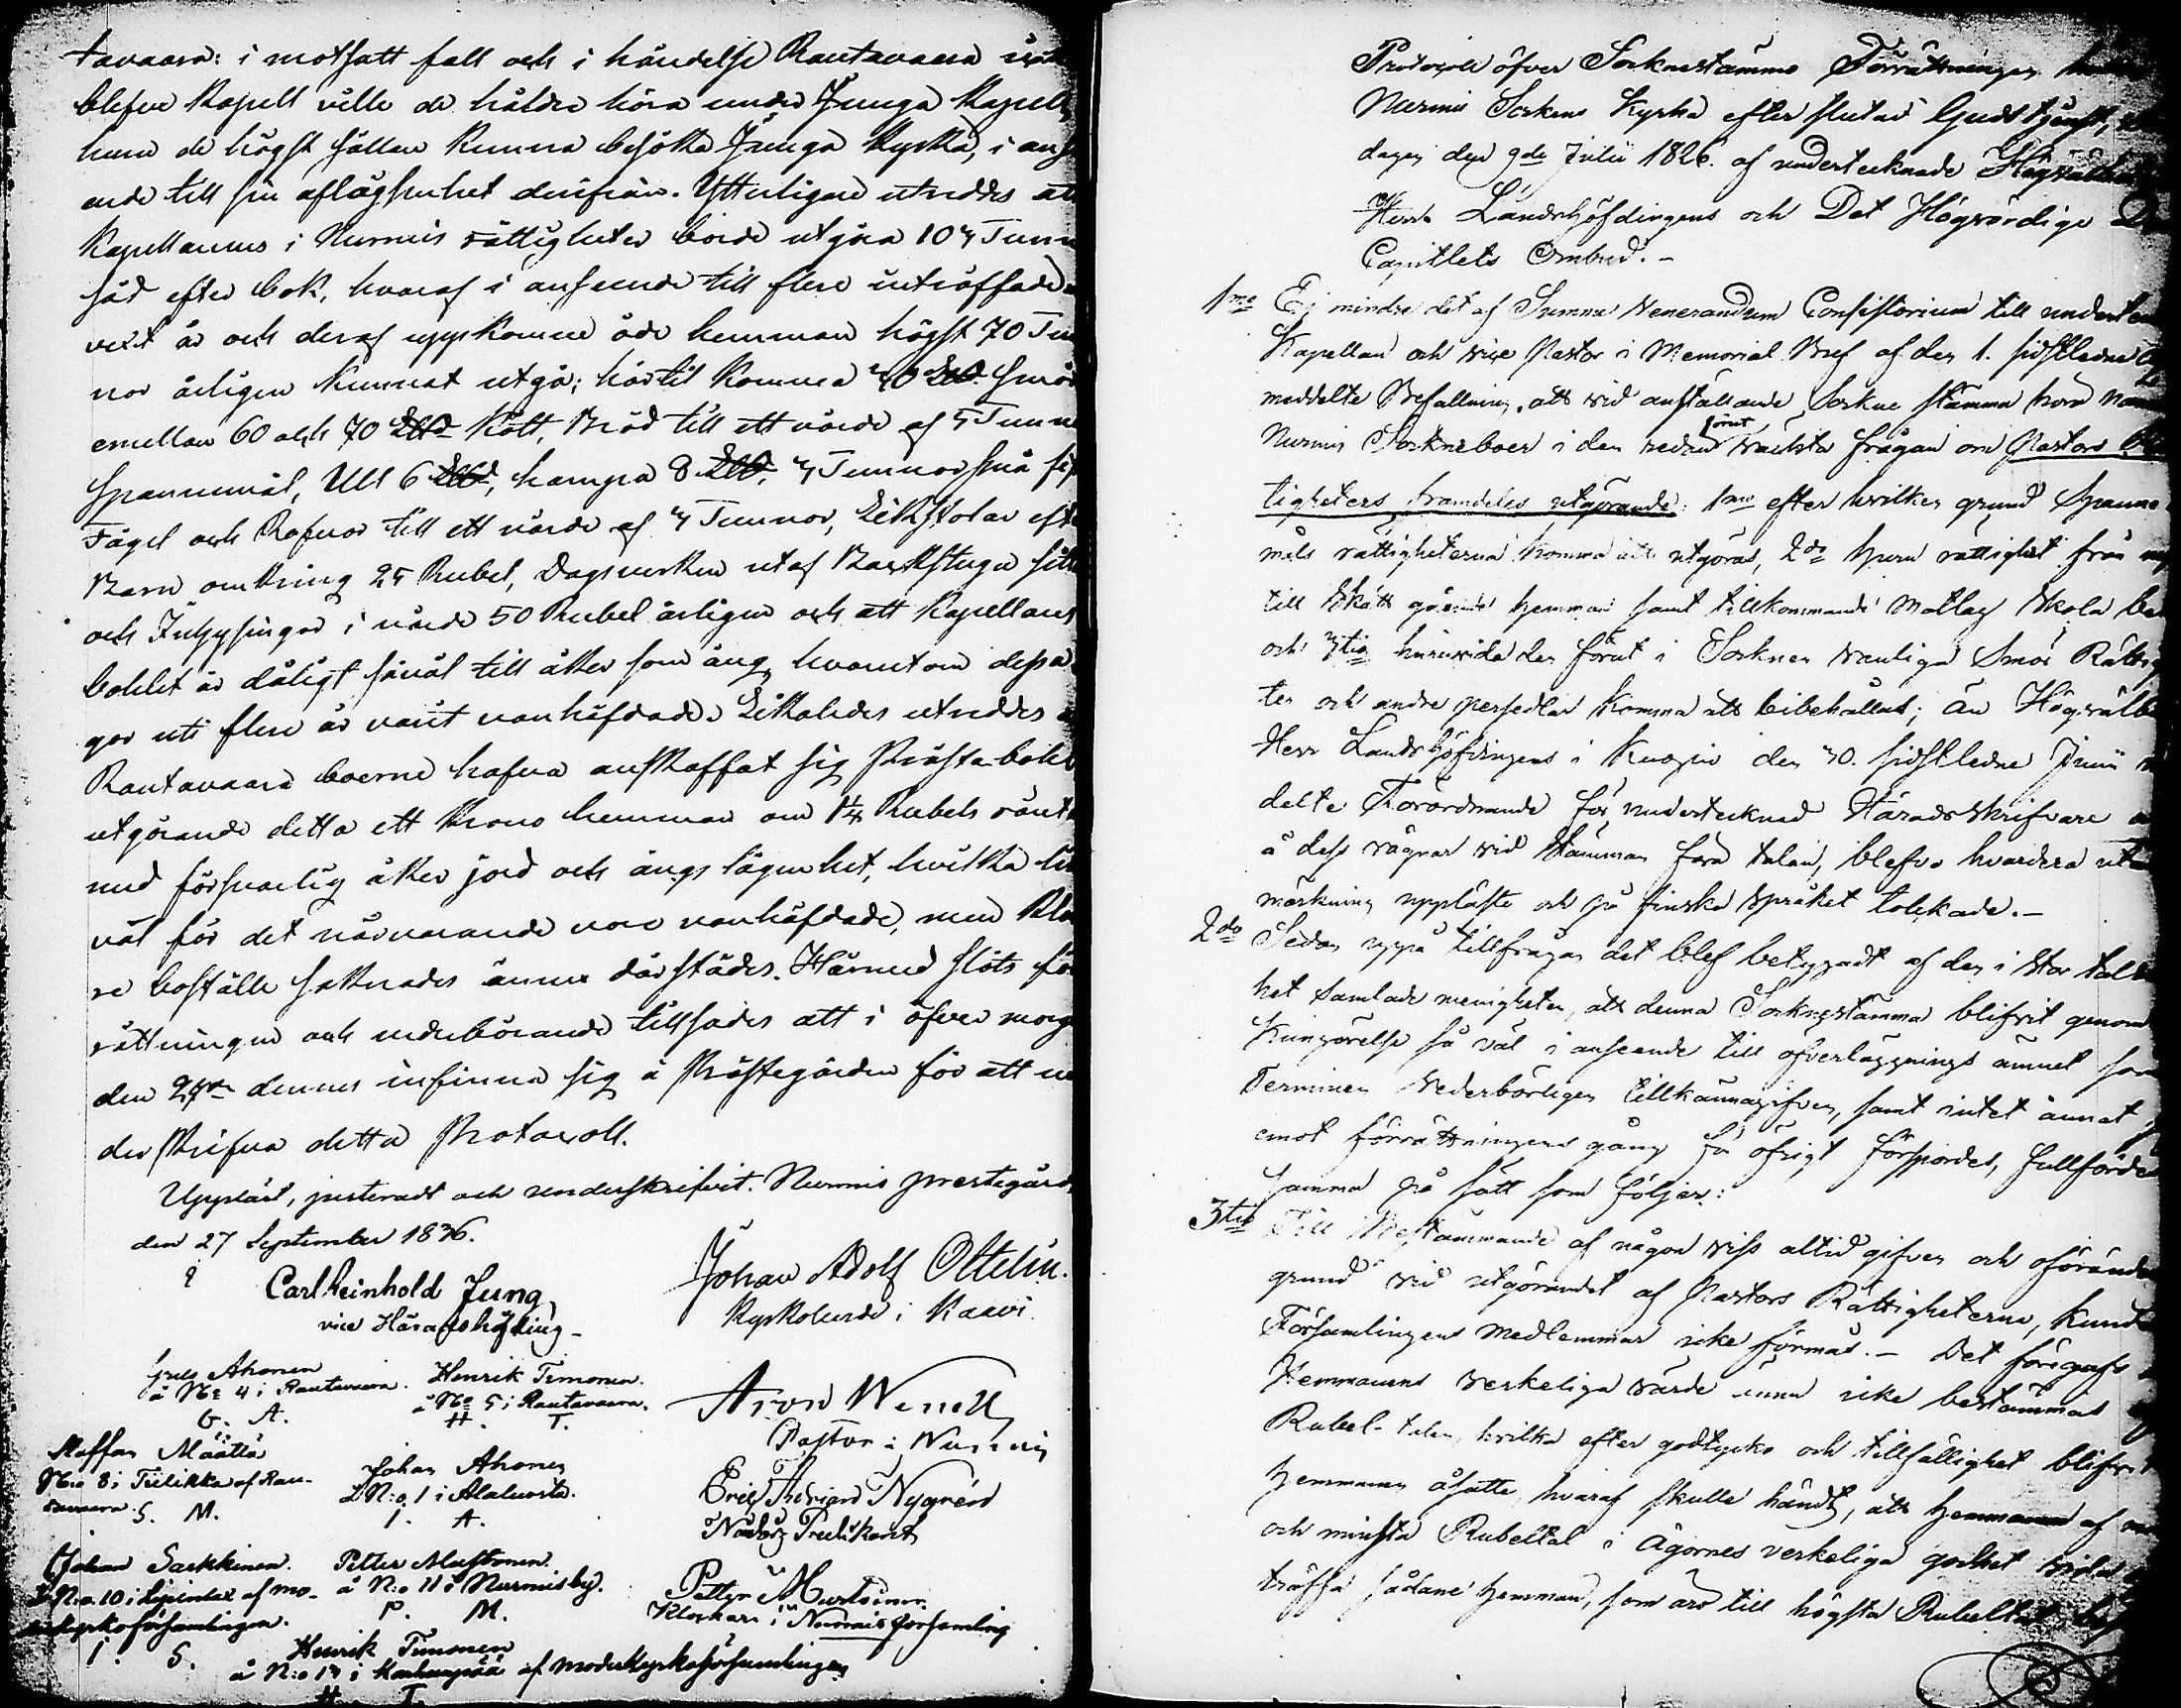 tavaara: i motsatt fall och i händelse Rautavaara icke
blefve Kapell ville de häldre höra under Juuga Kapell,
hum de högst sällan kunna besöka Juuga Kyrka, i anse
ende till sin aflägsenhet derifrån. Ytterligare utreddes att
Kapellanens i Nurmis rättigheter borde utgöra 104 Tunn
säd efter bok, hvaraf i anseende till flere inträffade
vext år och deraf uppkomne öde hemman högst 70 Tun
nor årligen kunnat utgå; härtil komma 40 Smör
emellan 60 och 70 Kött, Bröd till ett värde af 5 Tunn
Spannemål, Ull 6, hampa 8, 4 Tunnor små
Fågel och Rofvor till ett värde af 4 Tunnor, Likstolar eft
Barn omkring 25 Rubel, dagsverken utaf Backstugu sitt
och Inhysingar i värde 50 Rubel årligen och att Kapellans
bohlet är dåligt såväl till åker som äng, hvarutom dessa
gor uti flere år varit vanhäfdade. Likaledes utreddes a
Rautavaara boerne hafva anskaffat sig Prästa-bohl
utgörande detta ett Krono hemman om 1/4 Rubels ränt
med försvarlig åker jord och ängs lägenhet, hvilka lik
väl för det närvarande voro vanhäfdade, men Klo
re boställe saknades ännu därstädes. Härmed slöts för
rättningen och vederbörande tillsades att i öfver morg
den 27de dennes infinna sig å Prästegården för att un
der skrifva detta Protocoll.
Uppläst, justeradt och underskrifvit. Nurmis prestegård
den 27 September 1836.
Carl Reinhold Jung,
vice Häradshöfding
Johan Adolf Ottelin.
Kyrkoherde i Kaavi.
Ahonen
å No 4 i Rautavaara.
G. A.
Henrik Timonen.
å No 5 i Rautavaara.
H. T.
Arvid Wenell
Pastor i Nurmis
Staffan Määttä
No 8 i Tiilikka af Rau-
tavaara. S. M.
Johan Ahonen
å N:o 1 i Alaluosta.
J. A.
Eric Adrian Nygrén
Nådårs Predikant
Johan Sarkkinen.
å N:o 10 i Lipinlax af mo-
derkyrkoförsamlingen.
J. S.
Petter Mustonen.
å N:o 11 i Nurmis by.
P. M.
Petter Murtoinen.
Klockare i Nurmis församling
Henrik Timonen
å N:o 14 i Karhunpää af moderkyrkoförsamlingen
H. T.
Protocoll öfver Sockenstämmo Förrättningen
Nurmis Sockens Kyrka efter slutad Gudstjenst,
dagen den 9de Julii 1826. af undertecknade Högvälborne
Herr Landshöfdingens och Det Högvördige Do
Capitlets Ombud.-
1mo Ej mindre det af Summe Venerandum Consistorium till undert
Kapellan och vice Pastor i Memorial Bref af den 1. sistledne
meddelte Befallning, att vid anställande Sockne stämma höra
Nurmis Sockneboer i den redan förut väckta frågan om Pastors
tigheters framdeles utgörande: 1mo efter hvilken grund Spanne
måls rättigheterna komma att utgöras, 2do hvem rättighet från
till Skatt görande hemman samt tillkommande Matlag skola
och 3tio huruvida den förut i Socknen vanliga Smör Rättig
ter och andre persedlar komma att bibehållas; än Högvälb
Herr Landshöfdingens i Kuopio den 30. sistledne Junii
delte Förordnande för undertecknad Häradsskrifvare
å dess vägnar vid Stämman föra talan, blefvo hvardera utan
märkning uppläste och på finska språket tolckade.-
2do Sedan uppå tillfrågan det blef betygadt af den i stor tal
het samlade menigheten, att denna Socknestämma blifvit genom
Kungörelse så väl i anseende till öfverläggnings ämnet som
Terminen vederbörligen tillkännagifven, samt intet annat
emot förrättningens gång för öfrigt försports, fullfördes
samma på sätt som följer:
3tio Till Bestämmande af någon viss altid gifven och oförändr
grund vid utgörandet af Pastors Rättigheterne, kunde
Församlingens medlemmar icke förmås.- Det föregafs
Hemmanens verkeliga värde ännu icke bestämmas
Rubel-talen, hvilka efter godtycke och tillfällighet blifvit
hemmanen åsatte, hvaraf skulle händt, att hemmanen af
och minsta Rubeltal i Ägornes verkeliga godhet vida
träffa sådane hemman, som äro till högsta Rubeltal